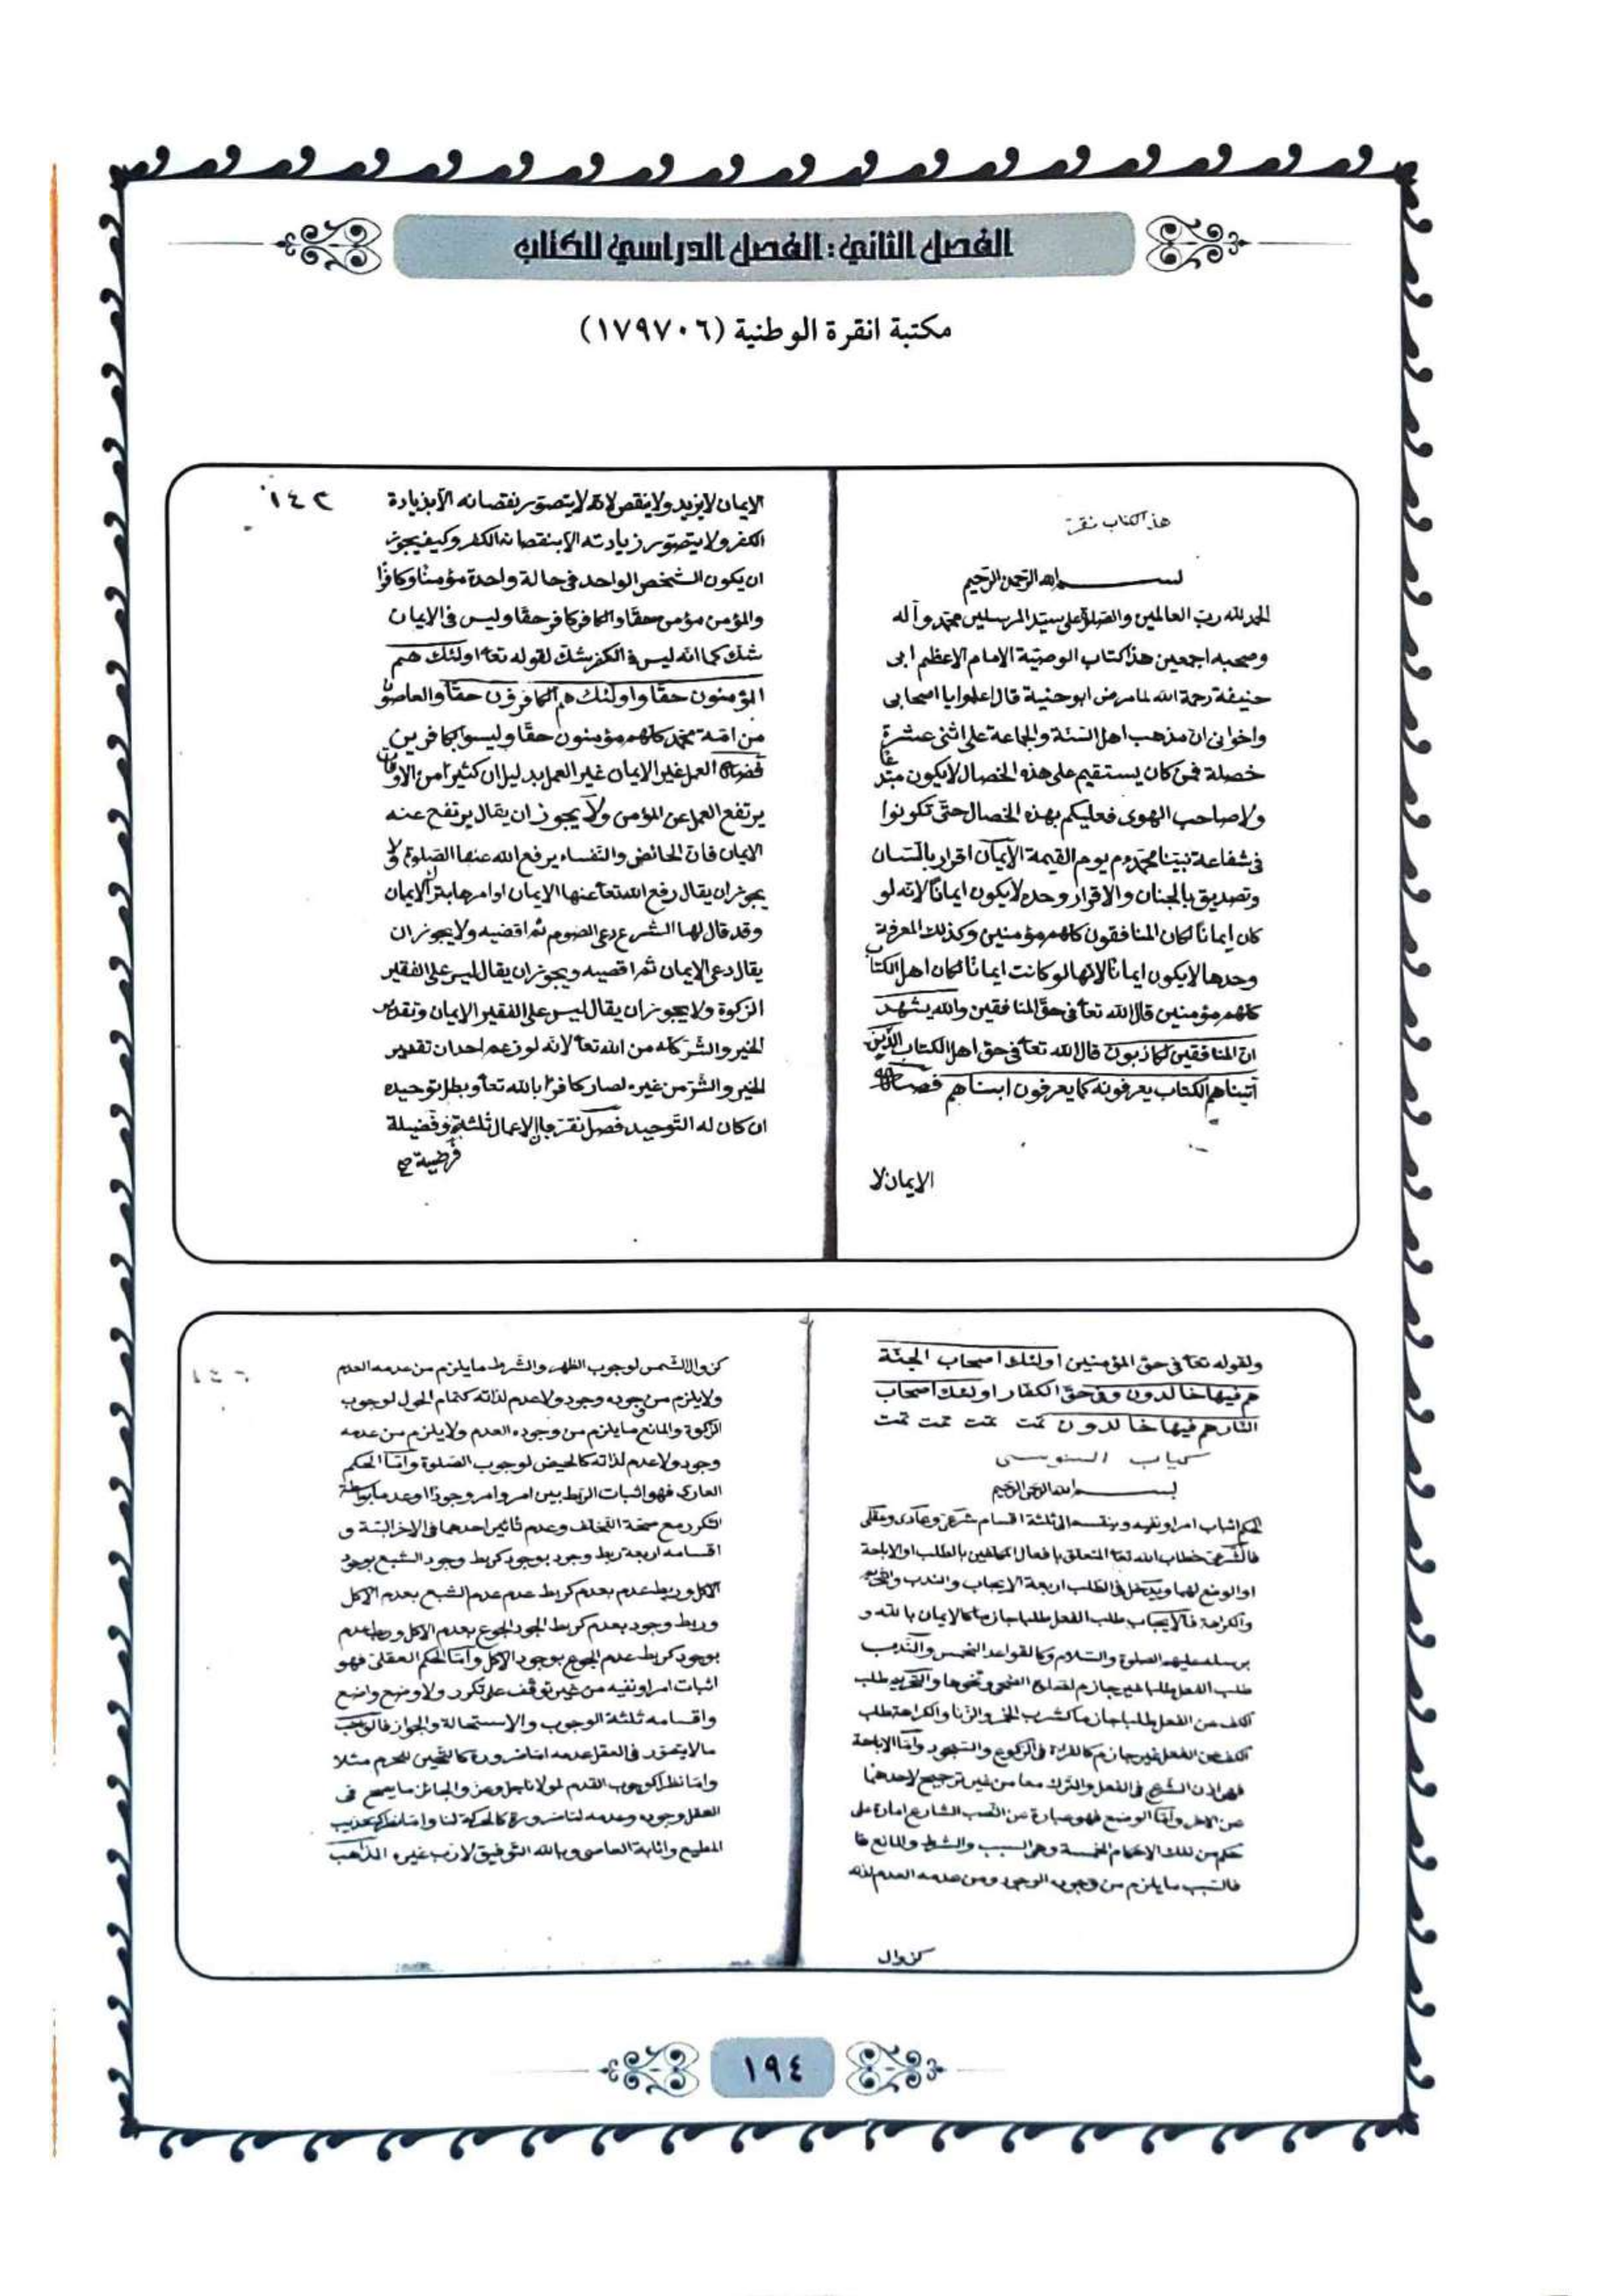 الفصل الثاني: الفصل الدراسي للكتاب
مكتبة انقرة الوطنية (١٧٩٧٠٦)
هذا كتاب نقر
بسم الله الرحمن الرحيم
الحمد لله رب العالمين والصلوة على سيد المرسلين محمد وآله
وصحبه اجمعين هذا كتاب الوصية الامام الاعظم ابى
حنيفة رحمة الله لما مرض ابو حنيفة قال اعلموا يا اصحابى
واخوانى ان مذهب اهل السنة والجماعة على اثنى عشرة
خصلة فمن كان يستقيم على هذه الخصال لا يكون مبتدعا
ولا صاحب الهوى فعليكم بهذه الخصال حتى تكونوا
فى شفاعة نبينا محمد م يوم القيمة الايمان اقرار باللسان
وتصديق بالجنان والاقرار وحده لا يكون ايمانا لانه لو
كان ايمانا لكان المنافقون كلهم مؤمنين وكذلك المعرفة
وحدها لا يكون ايمانا لانها لو كانت ايمانا لكان اهل الكتاب
كلهم مؤمنين قال الله تعا فى حق المنافقين والله يشهد
ان المنافقين لكاذبون قال الله تعا فى حق اهل الكتاب الذين
آتيناهم الكتاب يعرفونه كما يعرفون ابناهم فصل
الايمان لا
١٤٣
الايمان لا يزيد ولا ينقص لانه لا يتصور نقصانه الا بزيادة
الكفر ولا يتصور زيادته الا بنقصانه الكفر وكيف يجوز
ان يكون الشخص الواحد فى حالة واحدة مؤمنا وكافرا
والمؤمن مؤمن حقا والكافر كافر حقا وليس فى الايمان
شك كما انه ليس فى الكفر شك لقوله تعا اولئك هم
المؤمنون حقا واولئك هم الكافرون حقا والعاصون
من امة محمد كلهم مؤمنون حقا وليسوا بكافرين
فصل العمل غير الايمان غير العمل بدليل ان كثيرا من الاوقات
يرتفع العمل عن المؤمن ولا يجوز ان يقال يرتفع عنه
الايمان فان الحائض والنفساء يرفع الله عنها الصلوة ولا
يجوز ان يقال رفع الله تعا عنها الايمان او امرها بترك الايمان
وقد قال لها الشرع دعى الصوم ثم اقضيه ولا يجوز ان
يقال دعى الايمان ثم اقضيه ويجوز ان يقال ليس على الفقير
الزكوة ولا يجوز ان يقال ليس على الفقير الايمان وتقدير
الخير والشر كله من الله تعا لانه لو زعم احد ان تقدير
الخير والشر من غيره لصار كافرا بالله تعا وبطل توحيده
ان كان له التوحيد فصل نقر بان الاعمال ثلثة وفضيلة
فرضية صح
ولقوله تعا فى حق المؤمنين اولئك اصحاب الجنة
هم فيها خالدون وفى حق الكفار اولئك اصحاب
النار هم فيها خالدون تمت تمت تمت تمت
كتاب السنوسى
بسم الله الرحمن الرحيم
الحكم اثبات امر او نفيه وينقسم الى ثلثة اقسام شرعى وعادى وعقلى
فالشرعى خطاب الله تعا المتعلق بافعال المكلفين بالطلب او الاباحة
او الوضع لهما ويدخل فى الطلب اربعة الايجاب والندب والتحريم
والكراهة فالايجاب طلب الفعل طلبا جازما كالايمان بالله و
برسله عليهم الصلوة والسلام وكالقواعد الخمس والندب
طلب الفعل طلبا غير جازم كصلوة الضحى ونحوها والتحريم طلب
الكف عن الفعل طلبا جازما كشرب الخمر والزنا والكراهة طلب
الكف عن الفعل غير جازم كالقراءة فى الركوع والسجود واما الاباحة
فهى اذن الشرع فى الفعل والترك معا من غير ترجيح لاحدهما
عن الاخر واما الوضع فهو عبارة عن نصب الشارع امارة على
حكم من تلك الاحكام الخمسة وهى السبب والشرط والمانع
فالسبب ما يلزم من وجوده الوجود ومن عدمه العدم لذاته
كزوال
كزوال الشمس لوجوب الظهر والشرط ما يلزم من عدمه العدم
ولا يلزم من وجوده وجود ولا عدم لذاته كتمام الحول لوجوب
الزكوة والمانع ما يلزم من وجوده العدم ولا يلزم من عدمه
وجود ولا عدم لذاته كالحيض لوجوب الصلوة واما الحكم
العادى فهو اثبات الربط بين امر وامر وجودا او عدما بواسطة
التكرر مع صحة التخلف وعدم تاثير احدهما فى الاخر البتة و
اقسامه اربعة ربط وجود بوجود كربط وجود الشبع بوجود
الاكل وربط عدم بعدم كربط عدم عدم الشبع بعدم الاكل
وربط وجود بعدم كربط الجود الجوع بعدم الاكل وربط عدم
بوجود كربط عدم الجوع بوجود الاكل واما الحكم العقلى فهو
اثبات امر او نفيه من غير توقف على تكرر ولا وضع واضع
واقسامه ثلثة الوجوب والاستحالة والجواز فالواجب
ما لا يتصور فى العقل عدمه اما ضرورة كالتحيز للجرم مثلا
واما نظرا كوجوب القدم لمولانا جل وعز والجائز ما يصح فى
العقل وجوده وعدمه اما ضرورة كالحركة لنا واما نظرا كتعذيب
المطيع واثابة العاصى وبالله التوفيق لا رب غيره المذاهب
١٩٤